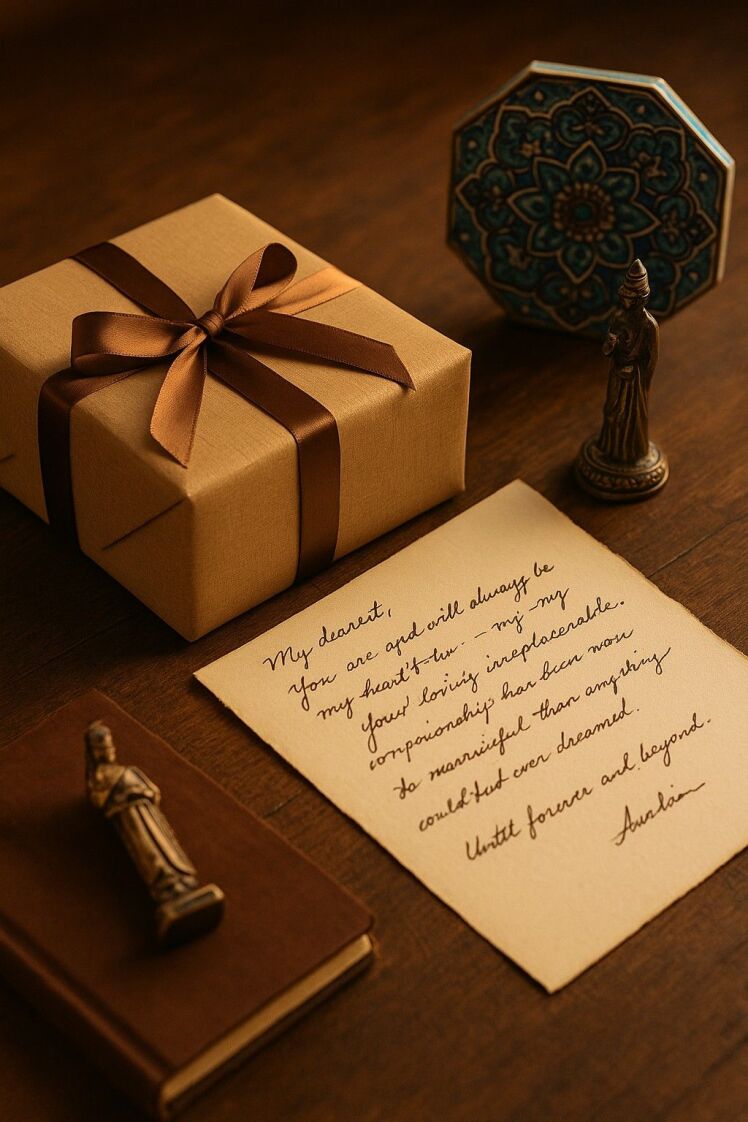 My dearest,
You are and will always be
my heart's - my -my
your loving irreplacerable.
companionship has been mon
to than anything
could had ever dreamed.
Until forever and beyond.